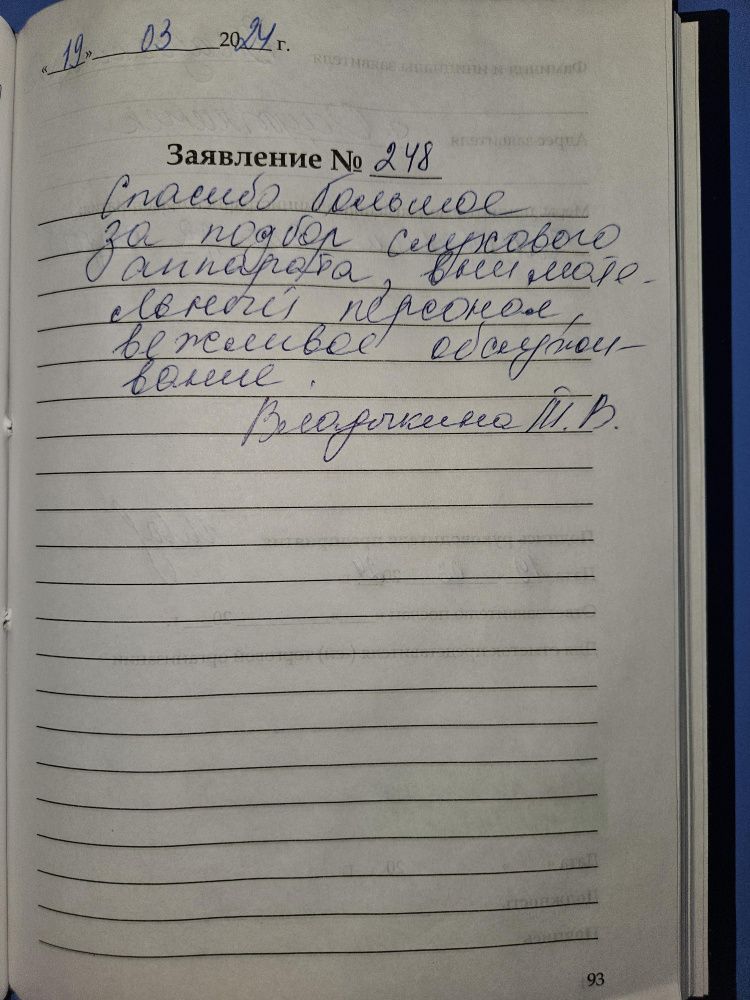 «19» 03 2024 г.
Заявление № 248
Спасибо большое
за подбор слухового
аппарата, внимате-
льный персонал,
вежливое обслужи-
вание.
Владыкина Т. В.
93